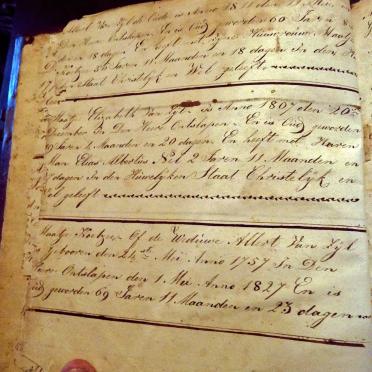 Albert Van Zyl de Oude is Anno 1811 den 11 Mei in
Den Heere Ontslapen En is Oud geworden 60 Jaren 8
18 dagen En heeft met zijne Huisvrouw Maatje
Kootzer 36 Jaren 11 Maanden en 18 dagen In den
Staat Christelijk en Wel geleeft
Maatje Elizabeth Van Zyl is Anno 1807 den 20
December In Den Heere Ontslapen En is Oud geworden
19 Jaren 2 Maanden en 20 dagen En heeft met Haren
Man Elias Albertus Nel 2 Jaren 11 Maanden en
7 dagen In den Huwelyken Staat Christelyk en
Wel geleeft
Maatje Kootzer Of de Weduwe Albert Van Zyl
Gebooren den 24ste Mei Anno 1757 In Den
Heere Ontslapen den 1 Mei Anno 1827 En is
Oud geworden 69 Jaren 11 Maanden en 23 dagen